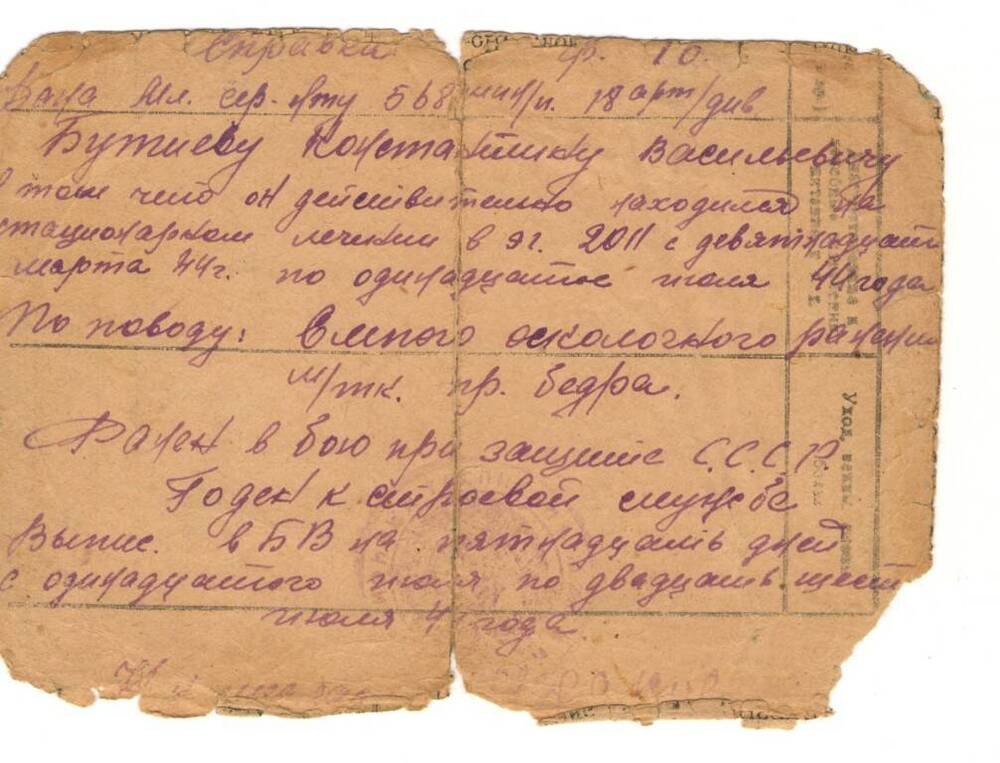 Справка ф. 10.
Дана Мл. сер-нту 568 мин/п. 18 арт/див
Бутиеву Константину Васильевичу
в том что он действительно находился на
стационарном лечении в эг. 2011 с девятнадцат
марта 44г. по одинадцатое июля 44 года
По поводу: Слепого осколочного ранения
м/тк. пр. бедра.
Ранен в бою при защите С.С.С.Р.
Годен к строевой службе
Выпис. в БВ на пятнадцать дней
с одинадцатого июля по двадцать шест
июля 4 года.
Уход